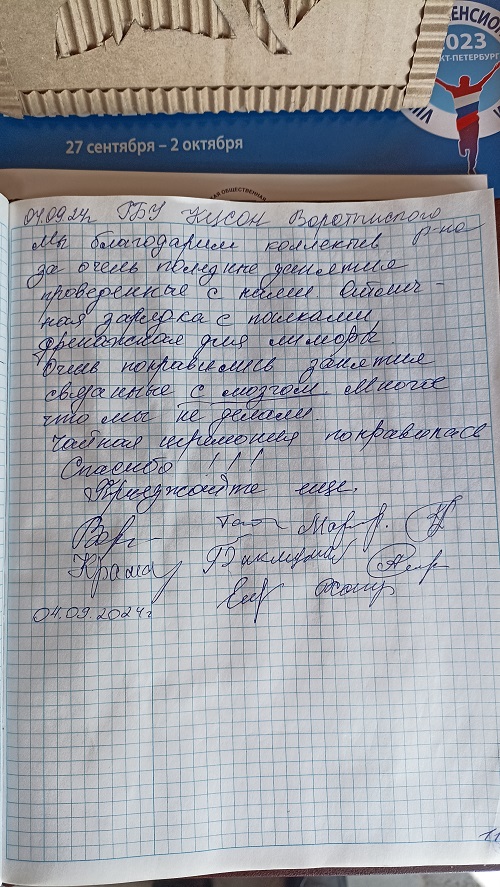 ЕНСИОН
2023
КТ-ПЕТЕРБУРГ
27 сентября – 2 октября
СКАЯ ОБЩЕСТВЕННАЯ
04.09.24г ГБУ КЦСОН Воротынского
р-на
Мы благодарим коллектив
за очень полезные занятия
проведенные с нами. Отлич-
ная зарядка с палками,
дренажная для лимфы.
Очень понравились занятия
связанные с мозгом. Многое
что мы не делали.
Чайная церемония понравилась
Спасибо !!!
Приезжайте еще.
04.09.2024г